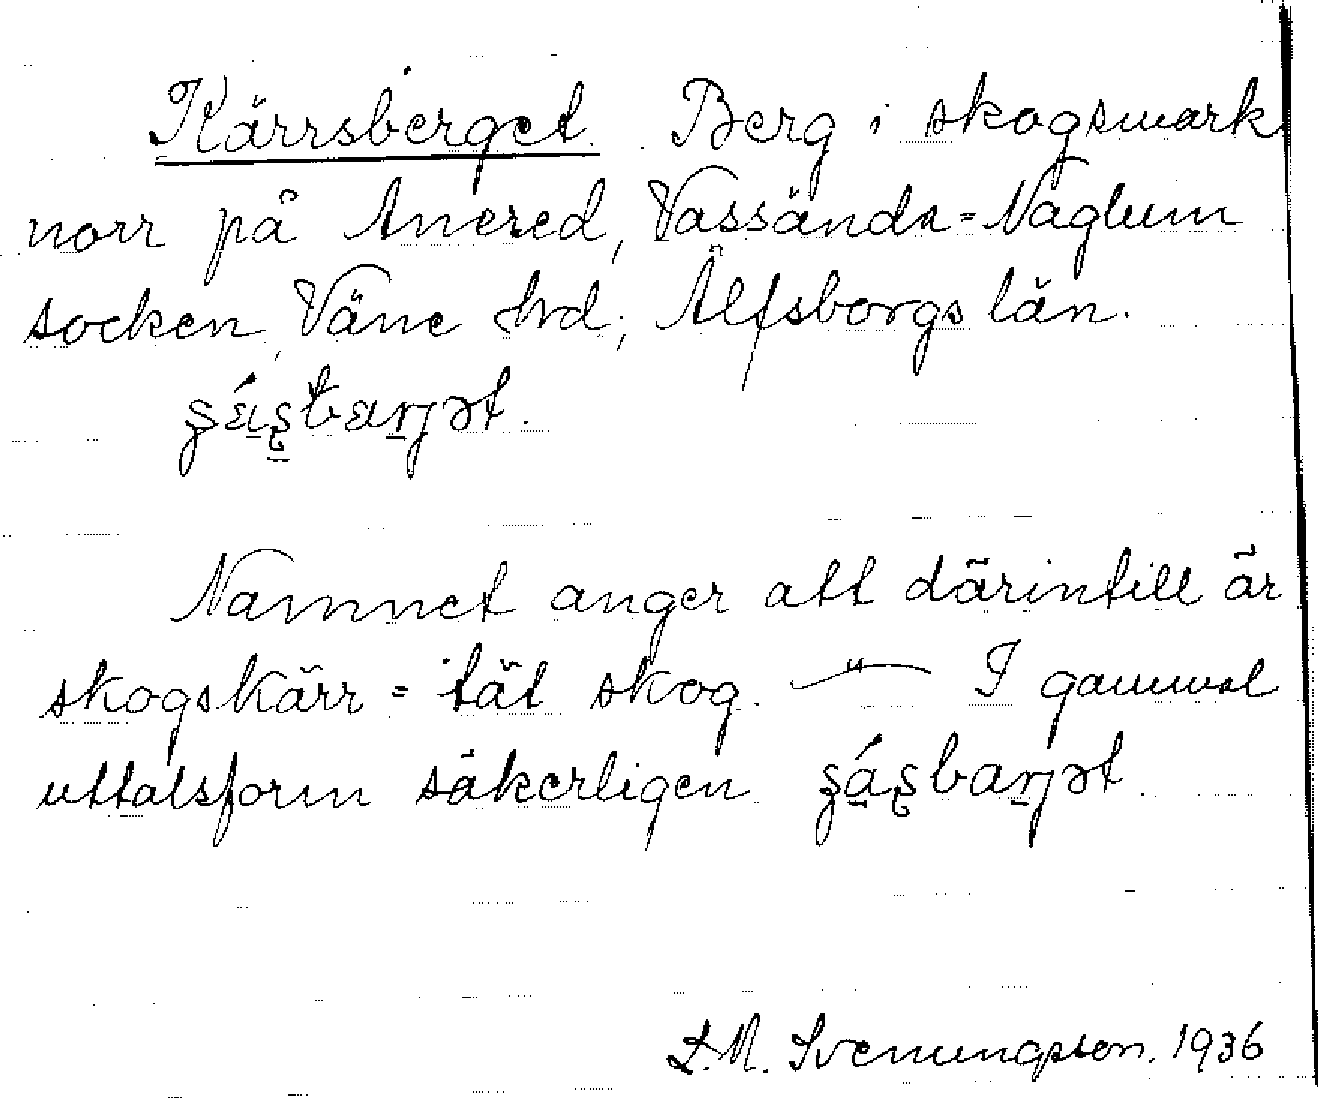 Kärrsberget. Berg i skogsmark
norr på Anered, Vassända-Naglum
socken, Väne hrd; Älfsborgs län.
Namnet anger att därintill är
skogskärr = tät skog. — I gammal
uttalsform säkerligen
L.M. Svenungsson. 1936